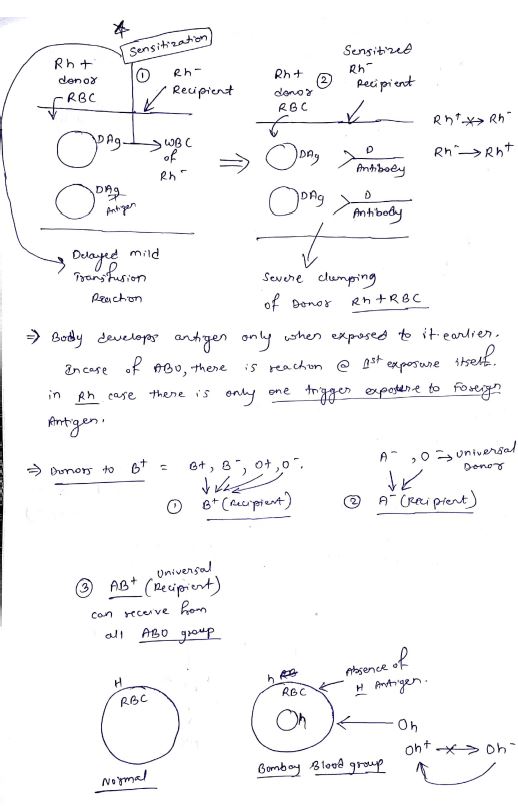 Sensitization
Rh+
donor
RBC
①
Rh⁻
Recipient
DAg
WBC
of
Rh⁻
DAg
Antigen
Delayed mild
Transfusion
Reaction
⇒
Sensitized
Rh⁻
Recipient
Rh+
donor
RBC
②
DAg
D
Antibody
DAg
D
Antibody
Severe clumping
of Donor Rh+RBC
Rh⁺ Rh⁻
Rh⁻ → Rh⁺
⇒ Body develops antigen only when exposed to it earlier.
Incase of ABO, there is reaction @ 1st exposure itself.
in Rh case there is only one trigger exposure to Foreign
Antigen.
⇒ Donors to B⁺ = B+, B⁻, O+, O⁻.
① B⁺ (Recipient)
A⁻, O⁻ → universal
Donor
② A⁻ (Recipient)
universal
③ AB⁺ (Recipient)
can receive from
all ABO group
H
RBC
Normal
h
RBC
Oh
Absence of
H Antigen.
Oh
Oh⁺ Oh⁻
Bombay Blood group